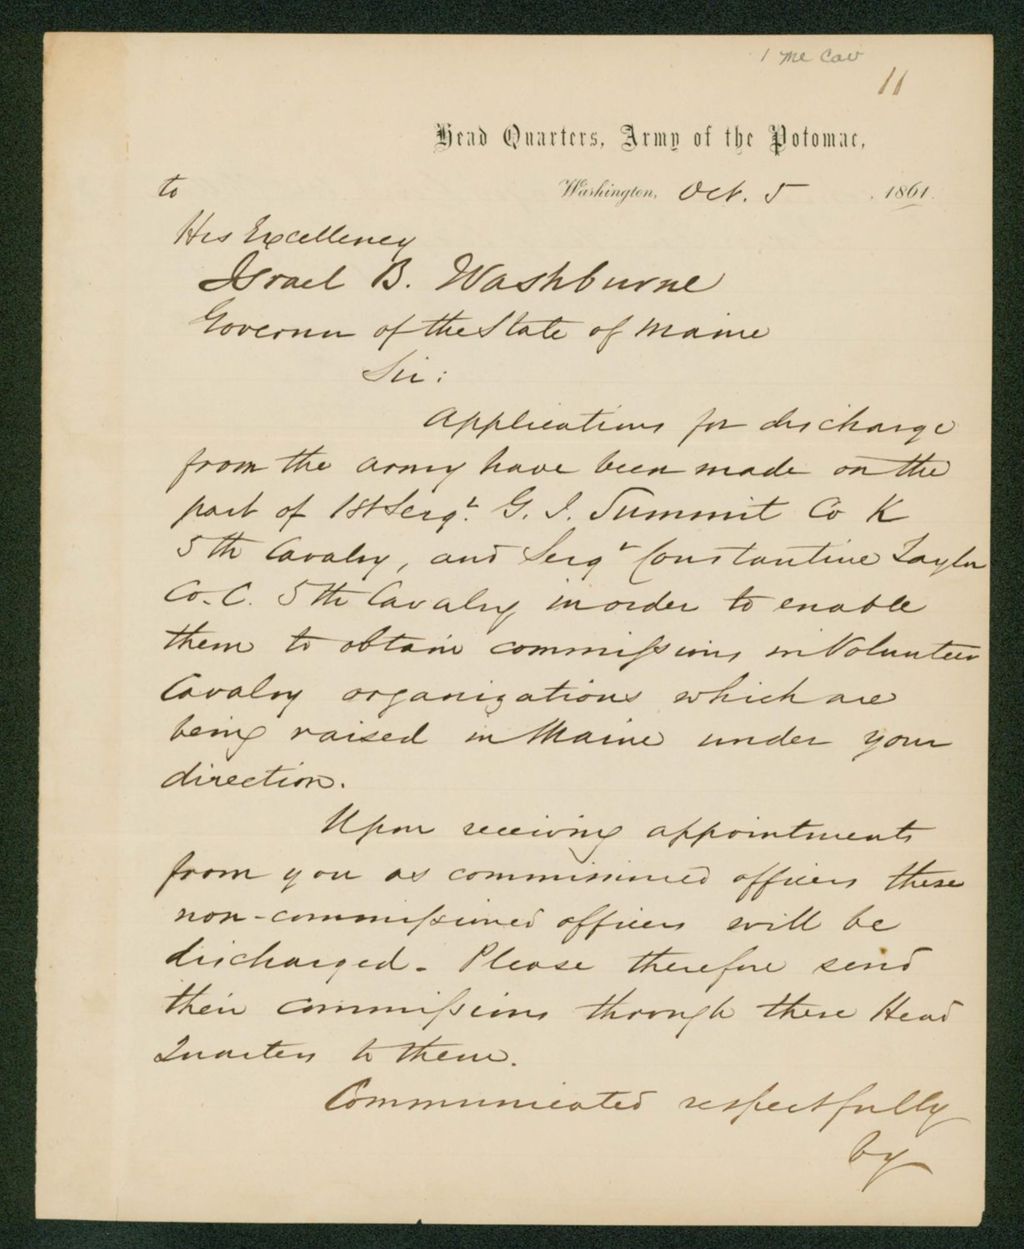 1 Me Cav
11
Head Quarters, Army of the Potomac,
Washington, Oct. 5, 1861.
to
His Excellency
Israel B. Washburne
Governor of the State of Maine
Sir:
Applications for discharge
from the army have been made on the
part of 1st Sergt. G. J. Summit Co K
5th Cavalry, and Sergt Constantine Taylor
Co. C. 5th Cavalry in order to enable
them to obtain commissions in Volunteer
Cavalry organizations which are
being raised in Maine under your
direction.
Upon receiving appointments
from you as commissioned officers these
non-commissioned officers will be
discharged. Please therefore send
their commissions through these Head
Quarters to them.
Communicated respectfully
by